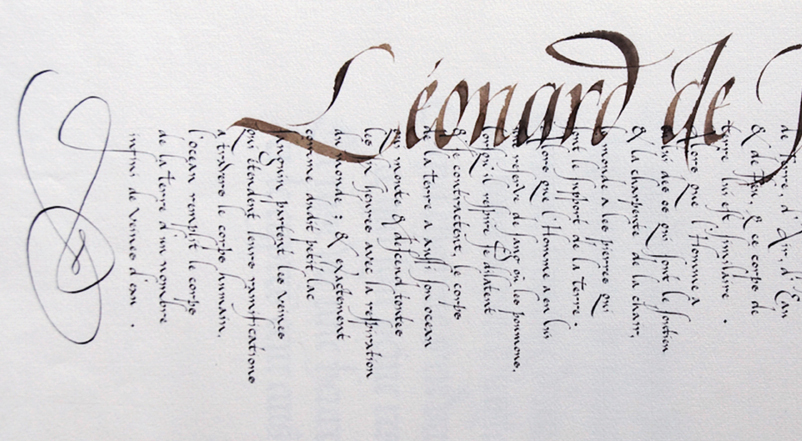 Léonard de
de Terre, d'Air, d'Eau
& de Feu, & ce corps de
Terre lui est similaire.
Alors que l'Homme a
lui des os qui font le soutien
& la charpente de la chair,
le monde a les pierres qui
sont le support de la terre.
Alors que l'Homme a en lui
de sang où les poumons,
lorsqu'il respire se dilatent
& se contractent, le corps
de la terre a aussi son océan
qui monte & descend toutes
les six heures avec la respiration
du monde : & exactement
comme dudit petit lac
sanguin partent les veines
qui étendent leurs ramifications
à travers le corps humain,
l'océan remplit le corps
de la terre d'un nombre
infini de veines d'eau.